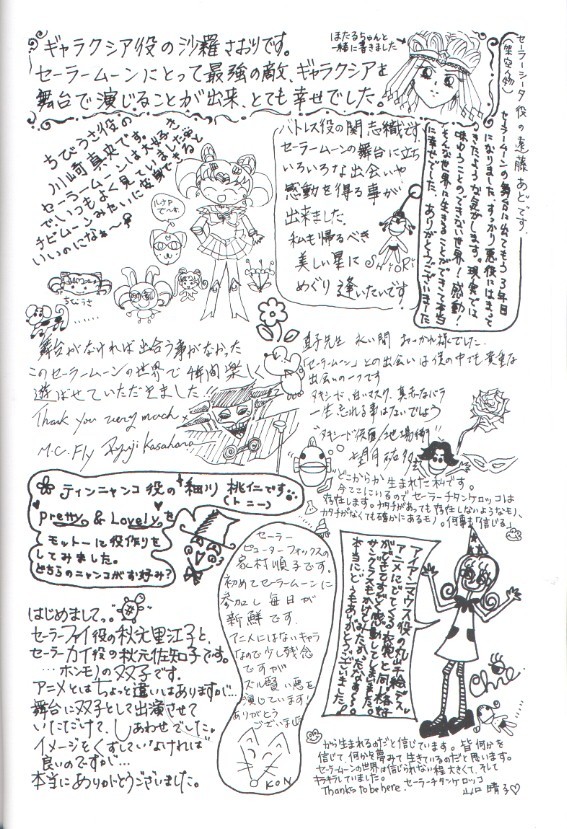 ギャラクシア役の沙羅さおりです。
セーラームーンにとって最強の敵、ギャラクシアを
舞台で演じることが出来、とても幸せでした。
ほたるちゃんと
一緒に書きました
セーラーシータ役の遠藤あどです
セーラームーンの舞台に出てもう3年目
になりました。すっかり悪役にはまって
きたような気がします。現実では
味わうことのできない世界！感動！
そんな世界に生きることができて本当
に幸せでした。ありがとうございました
ちびうさ役の
川崎真央です。
セーラームーンは大好き
で、いつもよく見ていました。
チビムーンみたいに変身できると
いいのになぁ〜
ルナPで〜す
ちびうさ
バトレス役の関志織です
セーラームーンの舞台に立ち
いろいろな出会いや
感動を得る事が
出来ました。
私も帰るべき
美しい星に
めぐり逢いたいです
SHIORI
舞台がなければ出会う事がなかった
このセーラームーンの世界で1年間楽しく
遊ばせていただきました
Thank you very much
M.C. Fly Ryuji Kasahara
直子先生 永い間 おつかれ様でした
「セーラームーン」との出会いは僕の中でも貴重な
出会いの一つです
タキシード、白いマスク、真赤なバラ
一生忘れる事はないでしょう
"タキシード仮面/地場衛"
望月祐多
ティンニャンコ役の"細川 桃仁です
(トニー)
pretty & Lovelyを
モットーに役作りを
してみました。
どちらのニャンコがお好み？
どこからか生まれた私です。
今ここにいるのでセーラーチタンケロッコは
存在します。カタチがあっても存在しないようなモノ、
カタチがなくても確かにあるモノ。何事も「信じる」
セーラー
ピューターフォックスの
家村順子です。
初めてセーラームーンに
参加し毎日が
新鮮です。
アニメにはないキャラ
なので少し残念
ですが
ズル賢い悪を
演じています！
ありがとう
ございます
KON
アイアンマウス役の丸山千絵デス
アニメにでてくる衣装と同格は
本当にどうもありがとうございました！
Chie
はじめまして。
セーラーファイ役の秋元里江子と、
セーラーカイ役の秋元佐知子です。
…ホンモノの双子です。
アニメとはちょっと違いはありますが…
舞台に双子として出演させて
いただけて、しあわせでした。
イメージをくずしていなければ
良いのですが…
本当にありがとうございました。
から生まれるのだと信じています。皆何かを
信じて、何かを夢みて生きているのだと思います。
セーラームーンの世界は信じられない程大きくて、そして
キラキラしていました。
Thanks to be here. セーラーチタンケロッコ
山口晴子♡